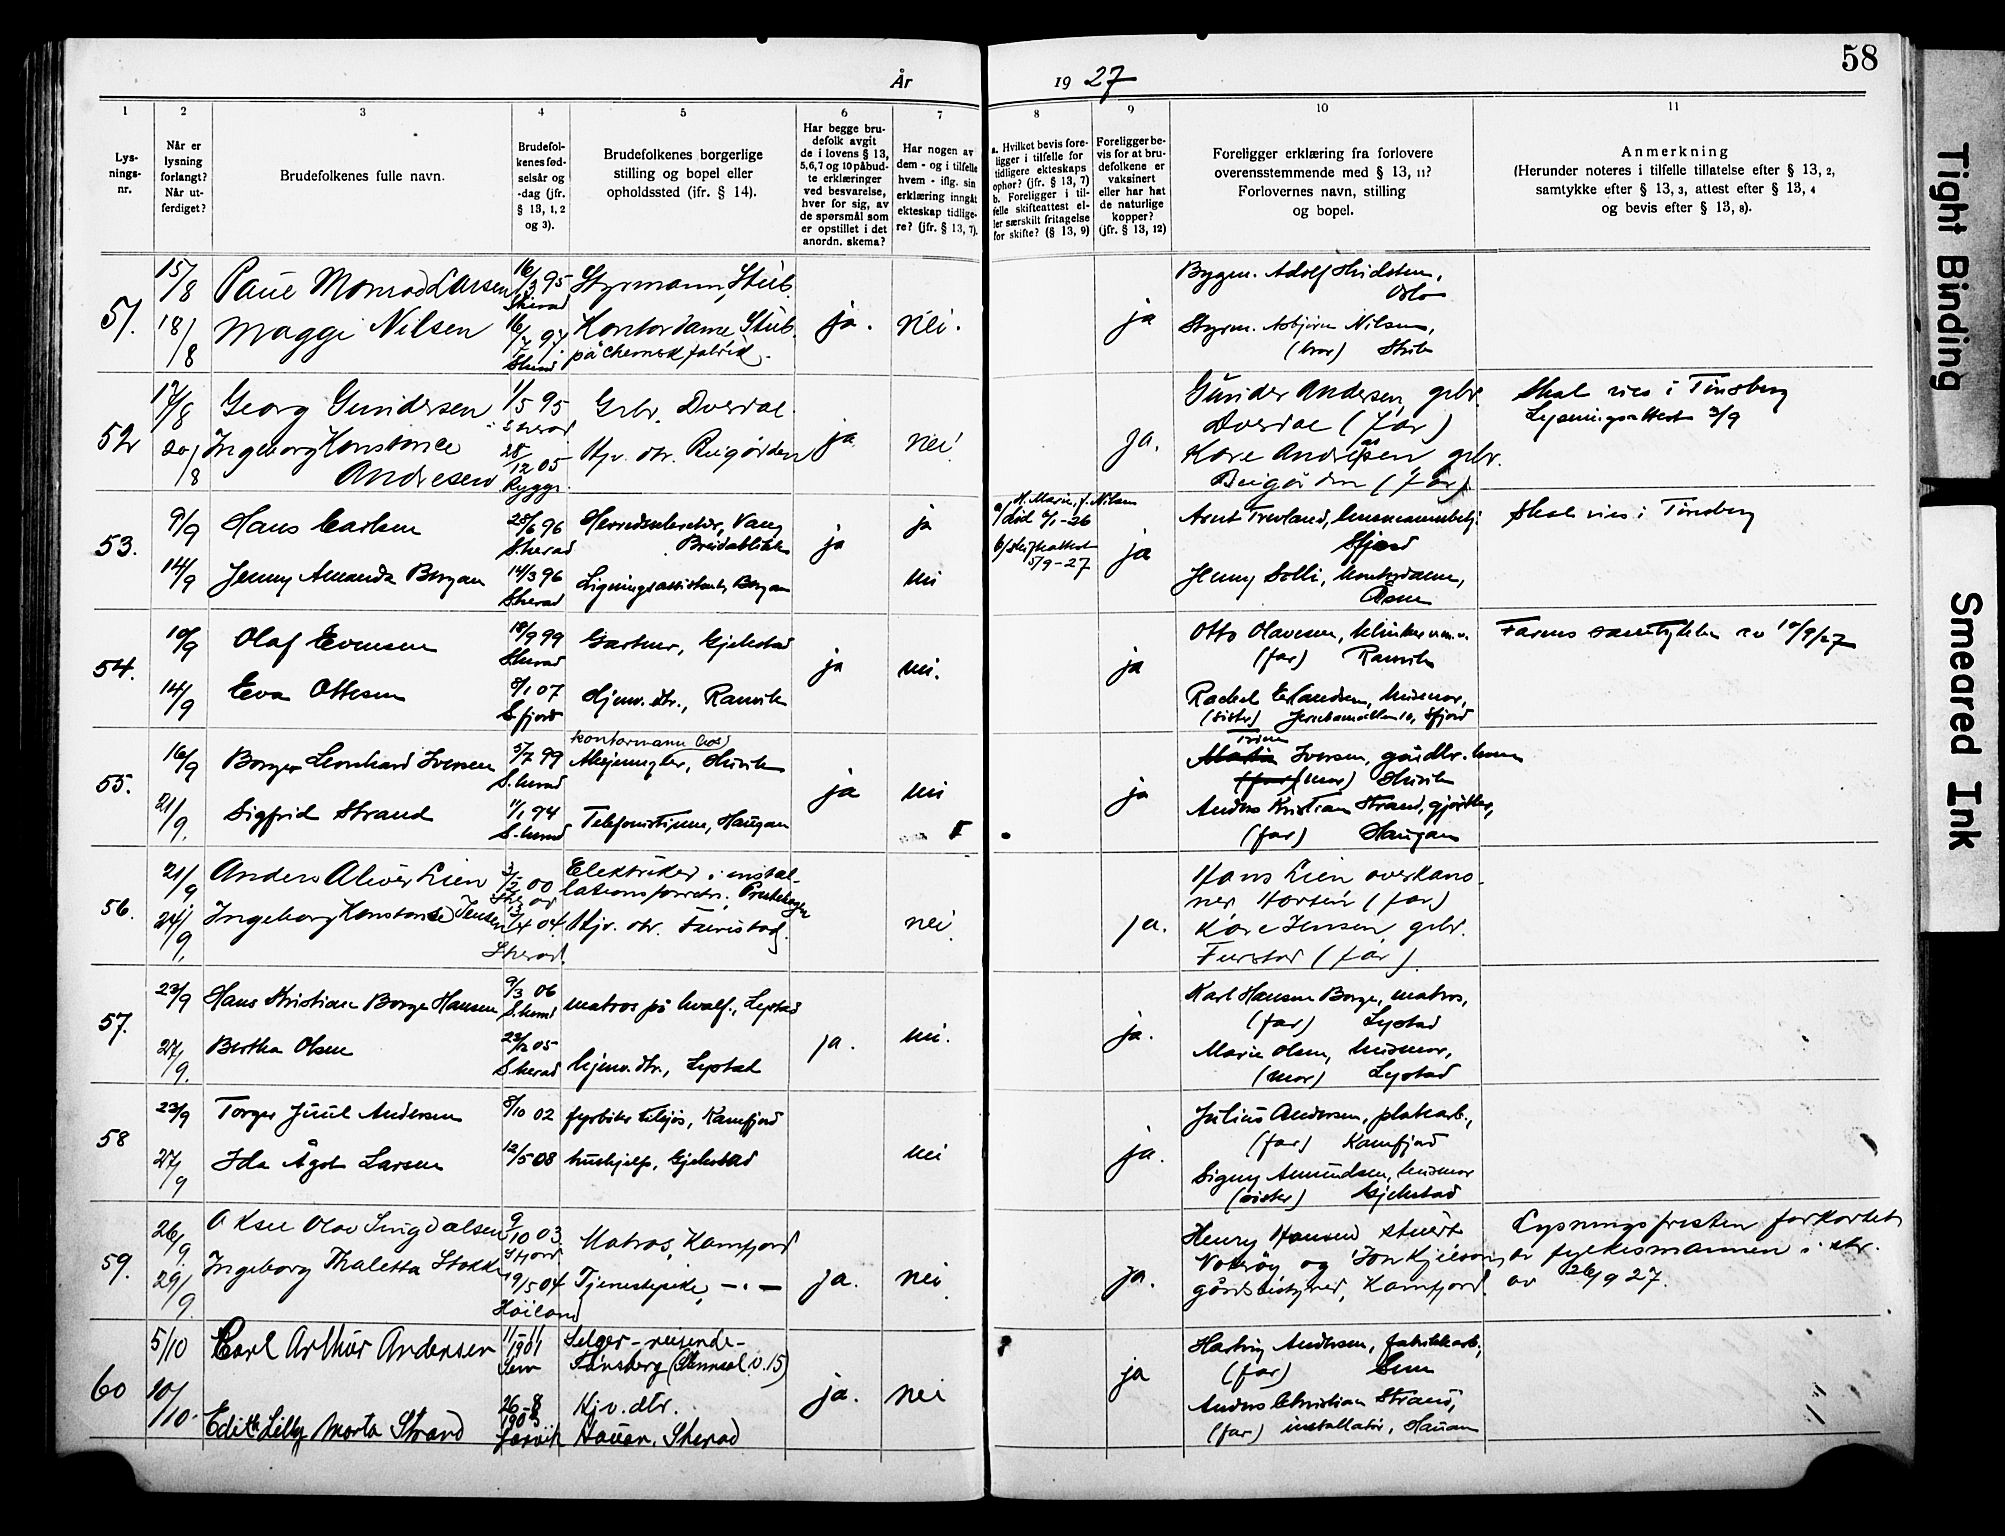 År 1927
58
1
2
3
4
5
6
7
8
9
10
11
Lys-
nings-
nr.
Når er
lysning
forlangt?
Når ut-
ferdiget?
Brudefolkenes fulle navn.
Brudefol-
kenes fød-
selsår og
-dag (jfr.
§ 13, 1, 2
og 3).
Brudefolkenes borgerlige
stilling og bopel eller
opholdssted (ifr. § 14).
Har begge bru-
defolk avgit
de i lovens § 13,
5,6,7 og 10 påbud-
te erklæringer
ved besvarelse,
hver for sig, av
de spørsmål som
er opstillet i det
anordn. skema?
Har nogen av
dem - og i tilfelle
hvem - iflg. sin
erklæring inngåt
ekteskap tidlige-
re? (jfr. § 13, 7).
a. Hvilket bevis fore-
ligger i tilfelle for
tidligere ekteskaps
ophør? (jfr. § 13, 7)
b. Foreligger i til-
felle skifteattest el-
ler særskilt fritagelse
for skifte? (§ 13, 9)
Foreligger be-
vis for at bru-
defolkene er
vaksinert
eller har hat
de naturlige
kopper?
(jfr. § 13, 12)
Foreligger erklæring fra forlovere
overensstemmende med § 13, 11?
Forlovernes navn, stilling
og bopel.
Anmerkning
(Herunder noteres i tilfelle tillatelse efter § 13, 2,
samtykke efter § 13, 3, attest efter § 13, 4
og bevis efter § 13, 8).
51.
15/8
18/8
Paul Monrad Larsen
Maggi Nilsen
16/3 95
Sherad
16/7 97
Styrmann, Stub.
Kontordame, Stub.
på chemisk fabrik.
ja.
nei.
ja
Bygm. Adolf
Oslo
Styrm. Asbjørn Nilsen,
(bror) Stub
52
17/8
20/8
Georg Gundersen
Ingeborg Konstance
Andresen
1/5 95
Sherad
28/12 05
Rygge.
Grbr. Dverdal
Hjv. dtr. Bugården
ja
nei
ja.
Gunder Andersen, grbr.
Dverdal (far)
Kåre Andresen grbr.
Bugården (far)
Skal vies i Tønsberg
Lysningsattest 3/9
53.
9/9
14/9
Hans Carlsen
Jenny Amanda Bergan
25/6 96
Sherad
14/3 96
Sherad
Herredssekretær, Vang
Breidablikk
Ligningsassistent, Bergan
ja
ja
nei
H. Marie, f. Nilsen
a/ død 6/1-26
b/ skifteattest
5/9-27
ja
Arnt Trevland, lensmannsbetj.
Sfjord
Jenny Solli, kontordame,
Skal vies i Tønsberg
54.
10/9
14/9
Olaf Evensen
Eva Ottesen
18/9 99
Sherad
8/1 07
S.fjord
Gartner, Gjekstad
Hjemv. dtr., Ranvik
ja
nei.
ja
Otto Olavesen,
(far) Ranvik
Rachel Erlandsen, husmor,
(sister) Sfjord
Farens samtykke av 10/9/27
55.
16/9
21/9.
Borger Leonhard Iversen
Sigfrid Strand
5/7 99
S.herad
11/1 94
S.herad
kontormann (hos)
Meieungler, Huvik
Telefonistinne, Haugan
ja
nei
ja
Trine
Iversen, gårdbr. kone
(mor) Huvik
Anders Kristian Strand, gjørtler,
(far) Haugan
56.
21/9
24/9.
Anders Aliver Lien
Ingeborg Konstanse Jensen
3/2 00
Sherad
13/4 04
Sherad.
Elektriker i instal-
lationsforretn. Prestehagen
Hjv. dtr. Furustad.
nei.
ja.
Hans Lien overkano-
ner Horten (far)
Kåre Jensen grbr.
Furstad (far).
57.
23/9
27/9.
Hans Kristian Borge Hansen
Bertha Olsen
9/3 06
S.herad
23/12 05
Sherad
matros på hvalf., Lystad
hjemv. dtr., Lystad
ja.
nei.
ja.
Karl Hansen Borge, matros,
(far) Lystad
Marie Olsen, husmor,
(mor) Lystad
58
23/9
27/9
Torger Juul Andersen
Ida Ågot Larsen
8/10 02
12/5 08
fyrbøter tilsjøs, Kamfjord
hushjelp, Gjekstad
nei
ja.
Julius Andersen, platearb.,
(far) Kamfjord
Signy Amundsen, husmor
(sister) Gjekstad
59.
26/9.
29/9.
Aksel Olav Sugdalsen
Ingeborg Thaletta Stokke
9/10 03.
Sfjord
19/5 04
Høiland
Matros, Kamfjord
Tjenestepike, -"-
ja.
nei.
ja.
Henry Hansen stuert
Nøtterøy og Jon Kjelsen,
gårdsbestyrer, Kamfjord.
Lysningsfristen forkortet
av fylkesmannen i skr.
av 26/9 27.
60
5/10
10/10.
Carl Arthur Andersen
Edith Lilly Marta Strand
11-11
1901
Sem
26-8
1903
Larvik
Selger-reisende-
Tønsberg (Stenmal. v. 15)
Hjv. dtr.
Hauan, Sherad
ja.
nei
ja
Hartvig Andersen, fabrikkarb.,
(far) Sem
Anders Christian Strand,
(far) installatør, Hauan
Tight Binding
Smeared Ink